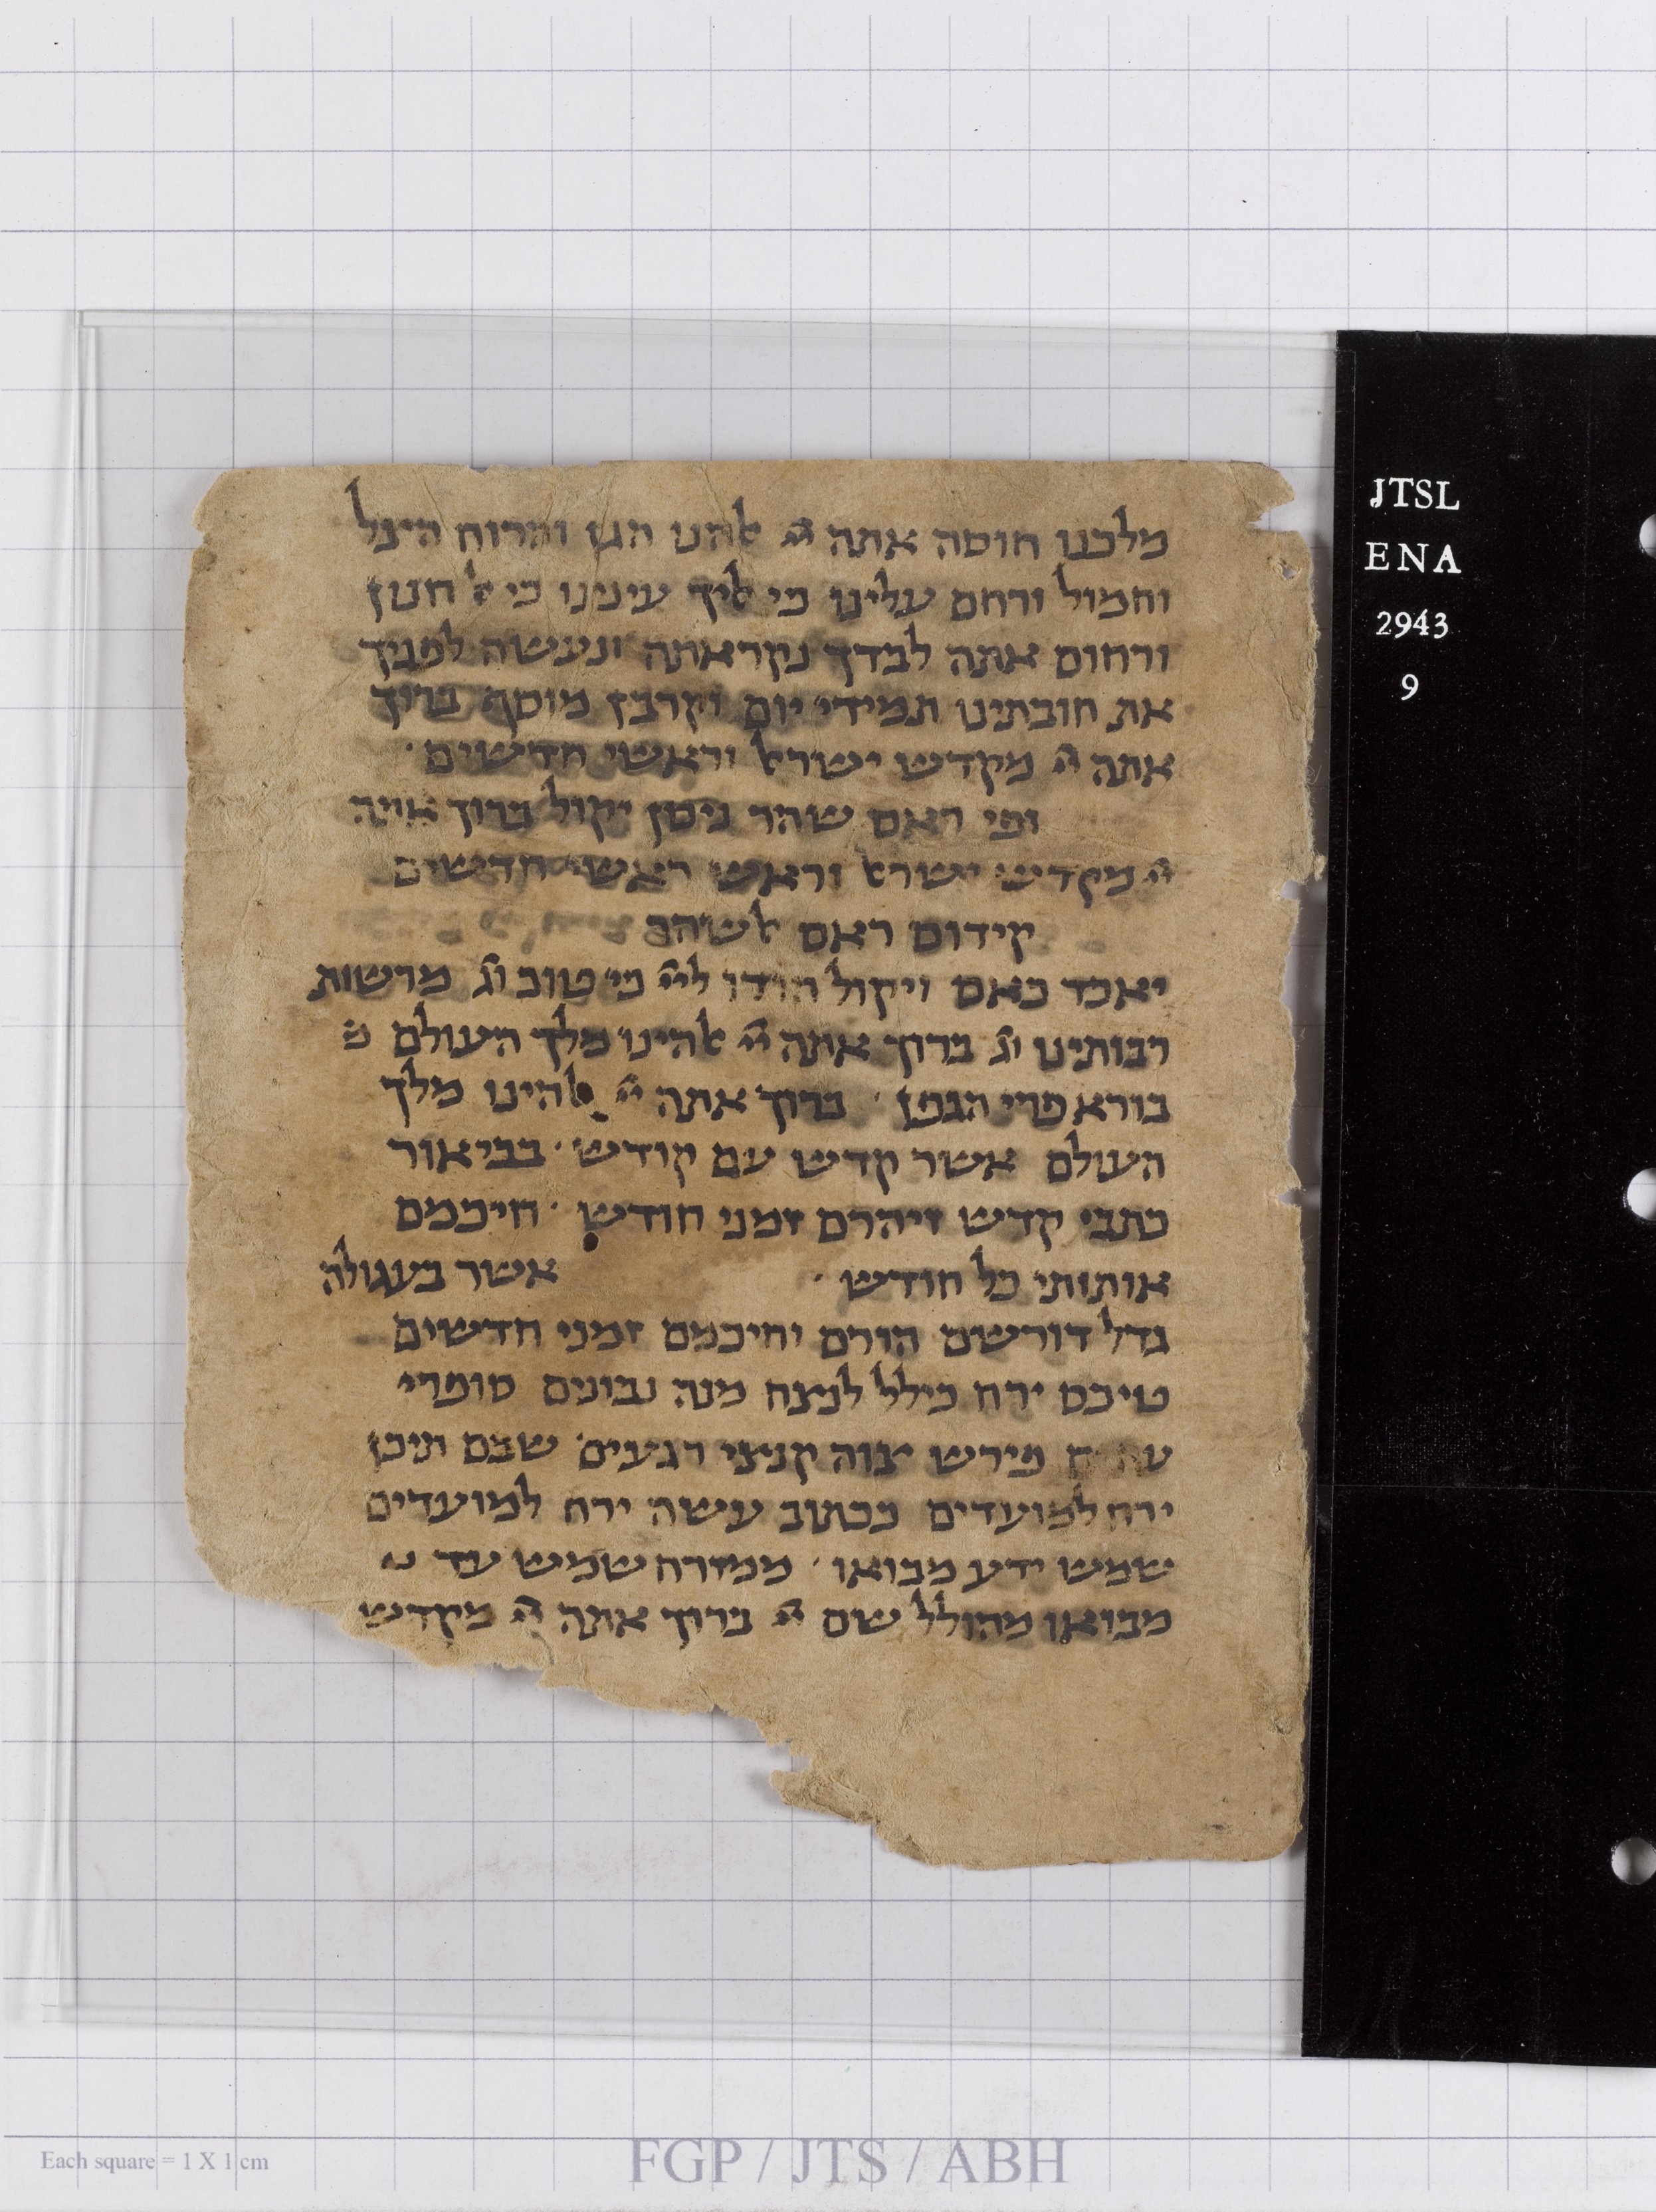 מלכנו חוסה אתה יי אלהינו הגן והרוח הינצל
וחמול ורחם עלינו כי אליך עינינו כי אל חנון
ורחום אתה לבדך נקראתה ונעשה לפניך
את חובתינו תמידי יום וקרבן מוסף ברוך
אתה יי מקדש ישראל וראשי חדשים ·
ופי ראס שהר ניסן יקול ברוך אתה
יי מקדש ישראל וראש ראשי חדשים
קידוס ראס אלשהר
יאכד כאס ויקול הודו ליי כי טוב וג מרשות
רבותינו וג ברוך אתה יי אלהינו מלך העולם פ
בורא פרי הגפן · ברוך אתה יי אלהינו מלך
העולם אשר קדש עם קודש · בביאור
כתבי קדש זיהרם זמני חודש · חיכמם
אותותי כל חודש · אשר בעגולה
גדל דורשם הורם וחיכמם זמני חדשים
טיכס ירח כילל למצח מנה נבונים סופרי
פירש יצוה קניצי רגעים שבם תיכן
ירח למועדים ככתוב עשה ירח למועדים
שמש ידע מבואו · ממזרח שמש עד מ
מבואו מהולל שם יי ברוך אתה יי מקדש
JTSL
ENA
2943
9
Each square = 1 X 1 cm
FGP / JTS / ABH